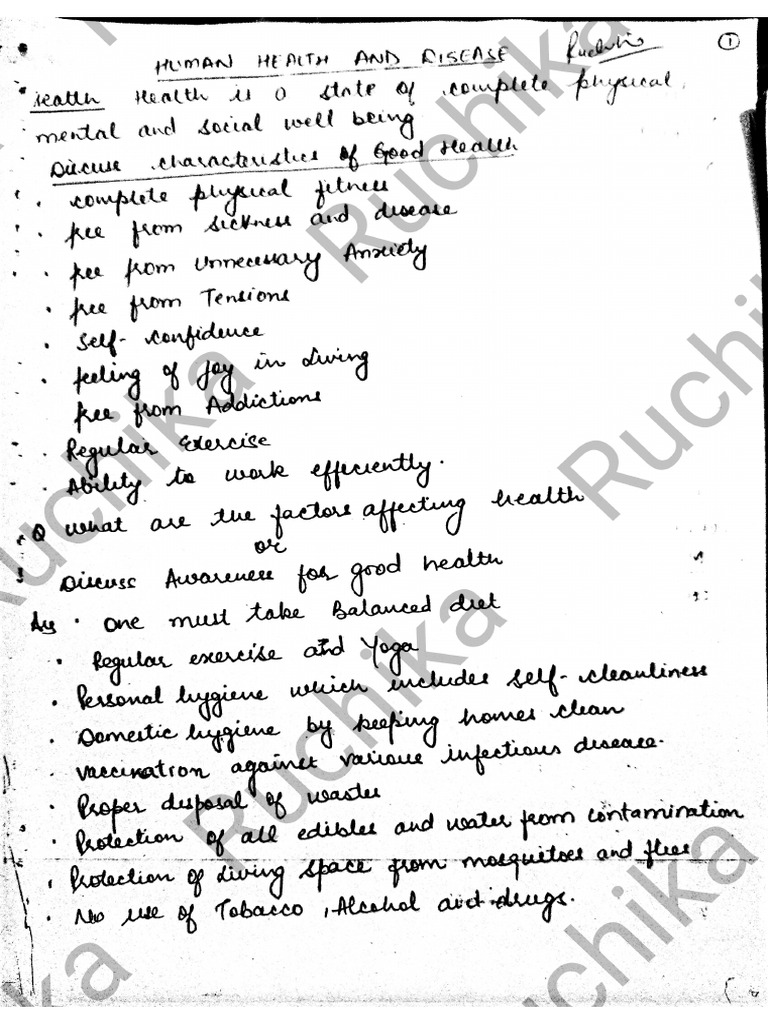 HUMAN HEALTH AND DISEASE Ruchika
①
Health Health is a state of complete physical
mental and social well being
Discuss characteristics of Good Health
• complete physical fitness
• free from sickness and disease
• free from Unnecessary Anxiety
• free from Tensions
• Self-confidence
• feeling of Joy in Living
free from Addictions
• Regular Exercise
• Ability to work efficiently.
Q What are the factors affecting health
or
Discuss Awareness for good health
Ans • One must take Balanced diet
• Regular exercise and Yoga
• Personal hygiene which includes self-cleanliness
• Domestic hygiene by keeping homes clean
• vaccination against various infectious disease.
• Proper disposal of wastes
• Protection of all edibles and water from contamination
• Protection of Living space from mosquitoes and flies
• No use of Tobacco, Alcohol and drugs.
Ruchika
Ruchika
Ruchika
Ruchika
Ruchika
Ruchika